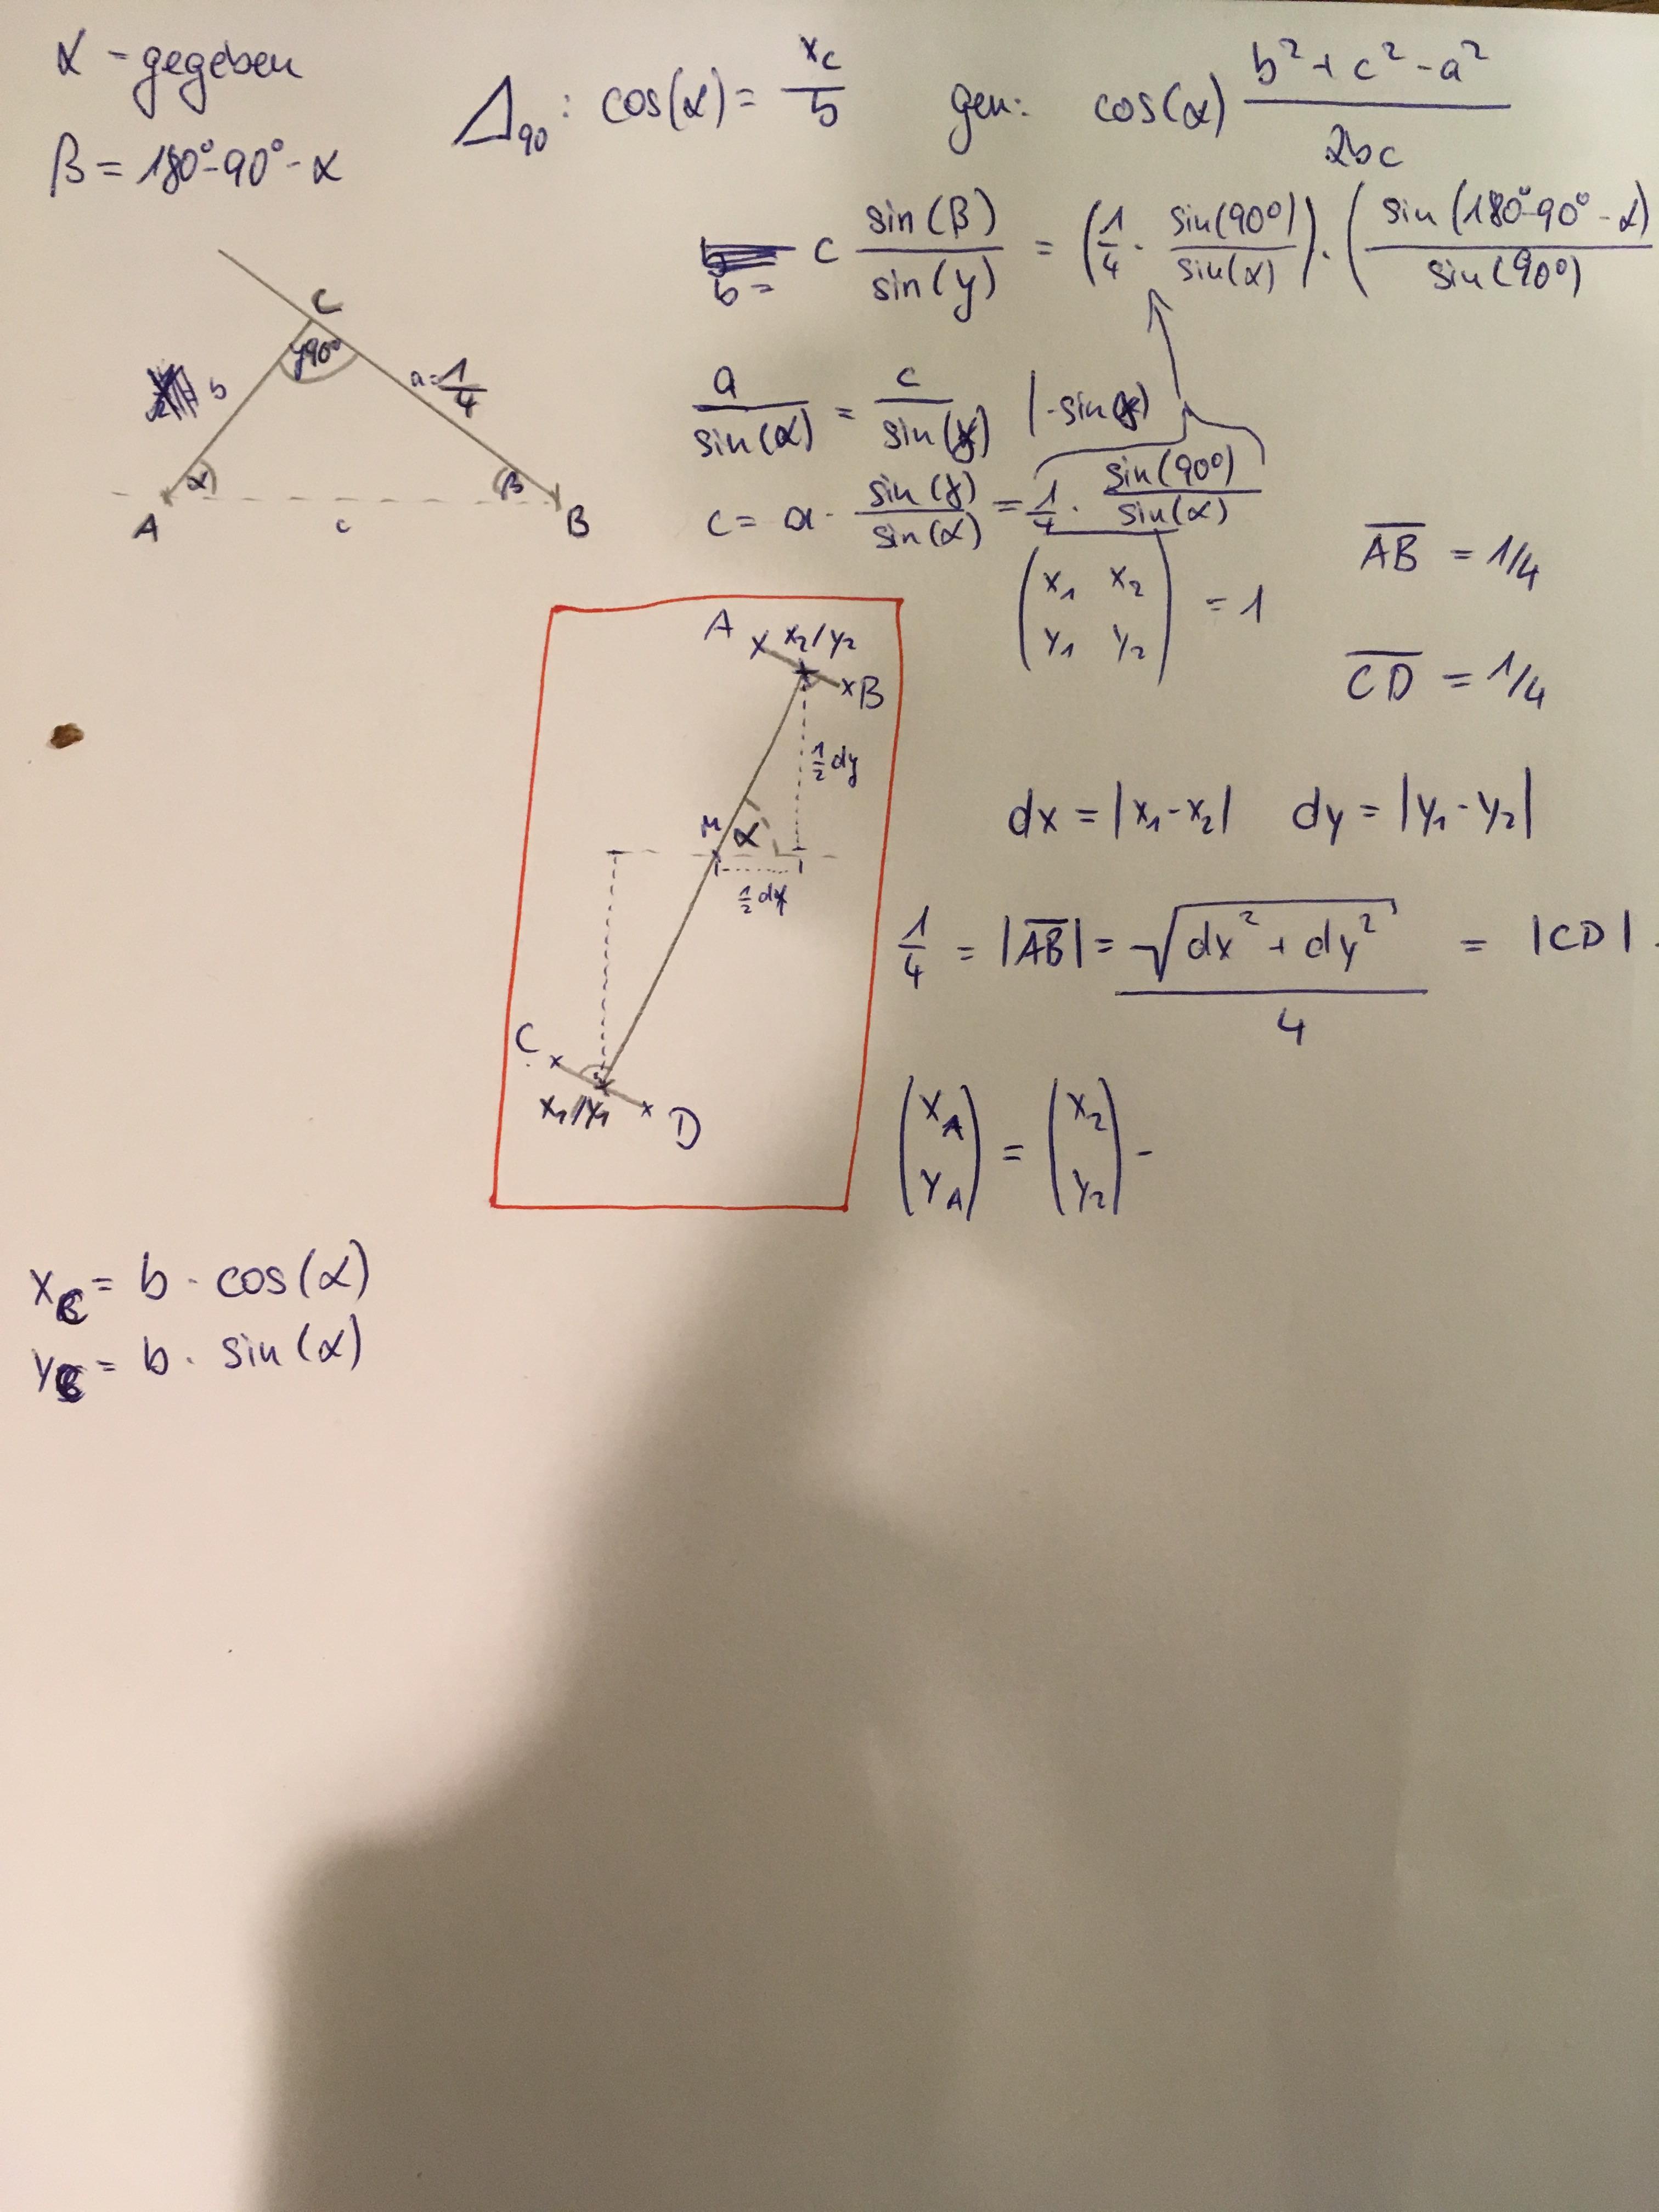 α - gegeben
β = 180° - 90° - α
△₉₀ : cos(α) = x_c / b
gen: cos(α) (b² + c² - a²) / 2bc
b = c sin(β) / sin(γ) = (1/4 · sin(90°) / sin(α)) · (sin(180° - 90° - α) / sin(90°)
C
γ 90°
b
a = 1/4
α
β
A
c
B
a / sin(α) = c / sin(γ) | · sin(γ)
c = a · sin(γ) / sin(α) = 1/4 · sin(90°) / sin(α)
(x₁ x₂
y₁ y₂) = 1
AB = 1/4
CD = 1/4
A x x₂/y₂
x B
1/2 dy
M α
1/2 dx
C x
x₁/y₁ x D
dx = |x₁ - x₂| dy = |y₁ - y₂|
1/4 = |AB| = √(dx² + dy²) / 4 = |CD|
(x_A
y_A) = (x₂
y₂) -
x_C = b · cos(α)
y_C = b · sin(α)